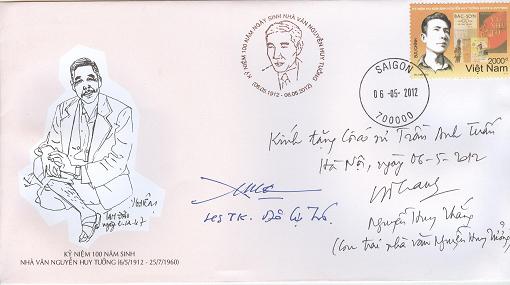 KỶ NIỆM 100 NĂM NGÀY SINH NHÀ VĂN NGUYỄN HUY TƯỞNG
(06.05.1912 - 06.05.2012)
SAIGON
06-05-2012
700000
BẮC SƠN
2000đ
Việt Nam
BƯU CHÍNH
Kính tặng
Trần Anh Tuấn
Hà Nội, ngày 06-5-2012
Nguyễn Huy Thắng
(Con trai nhà văn Nguyễn Huy Tưởng)
HS TK. Đỗ
KỶ NIỆM 100 NĂM SINH
NHÀ VĂN NGUYỄN HUY TƯỞNG (6/5/1912 - 25/7/1960)